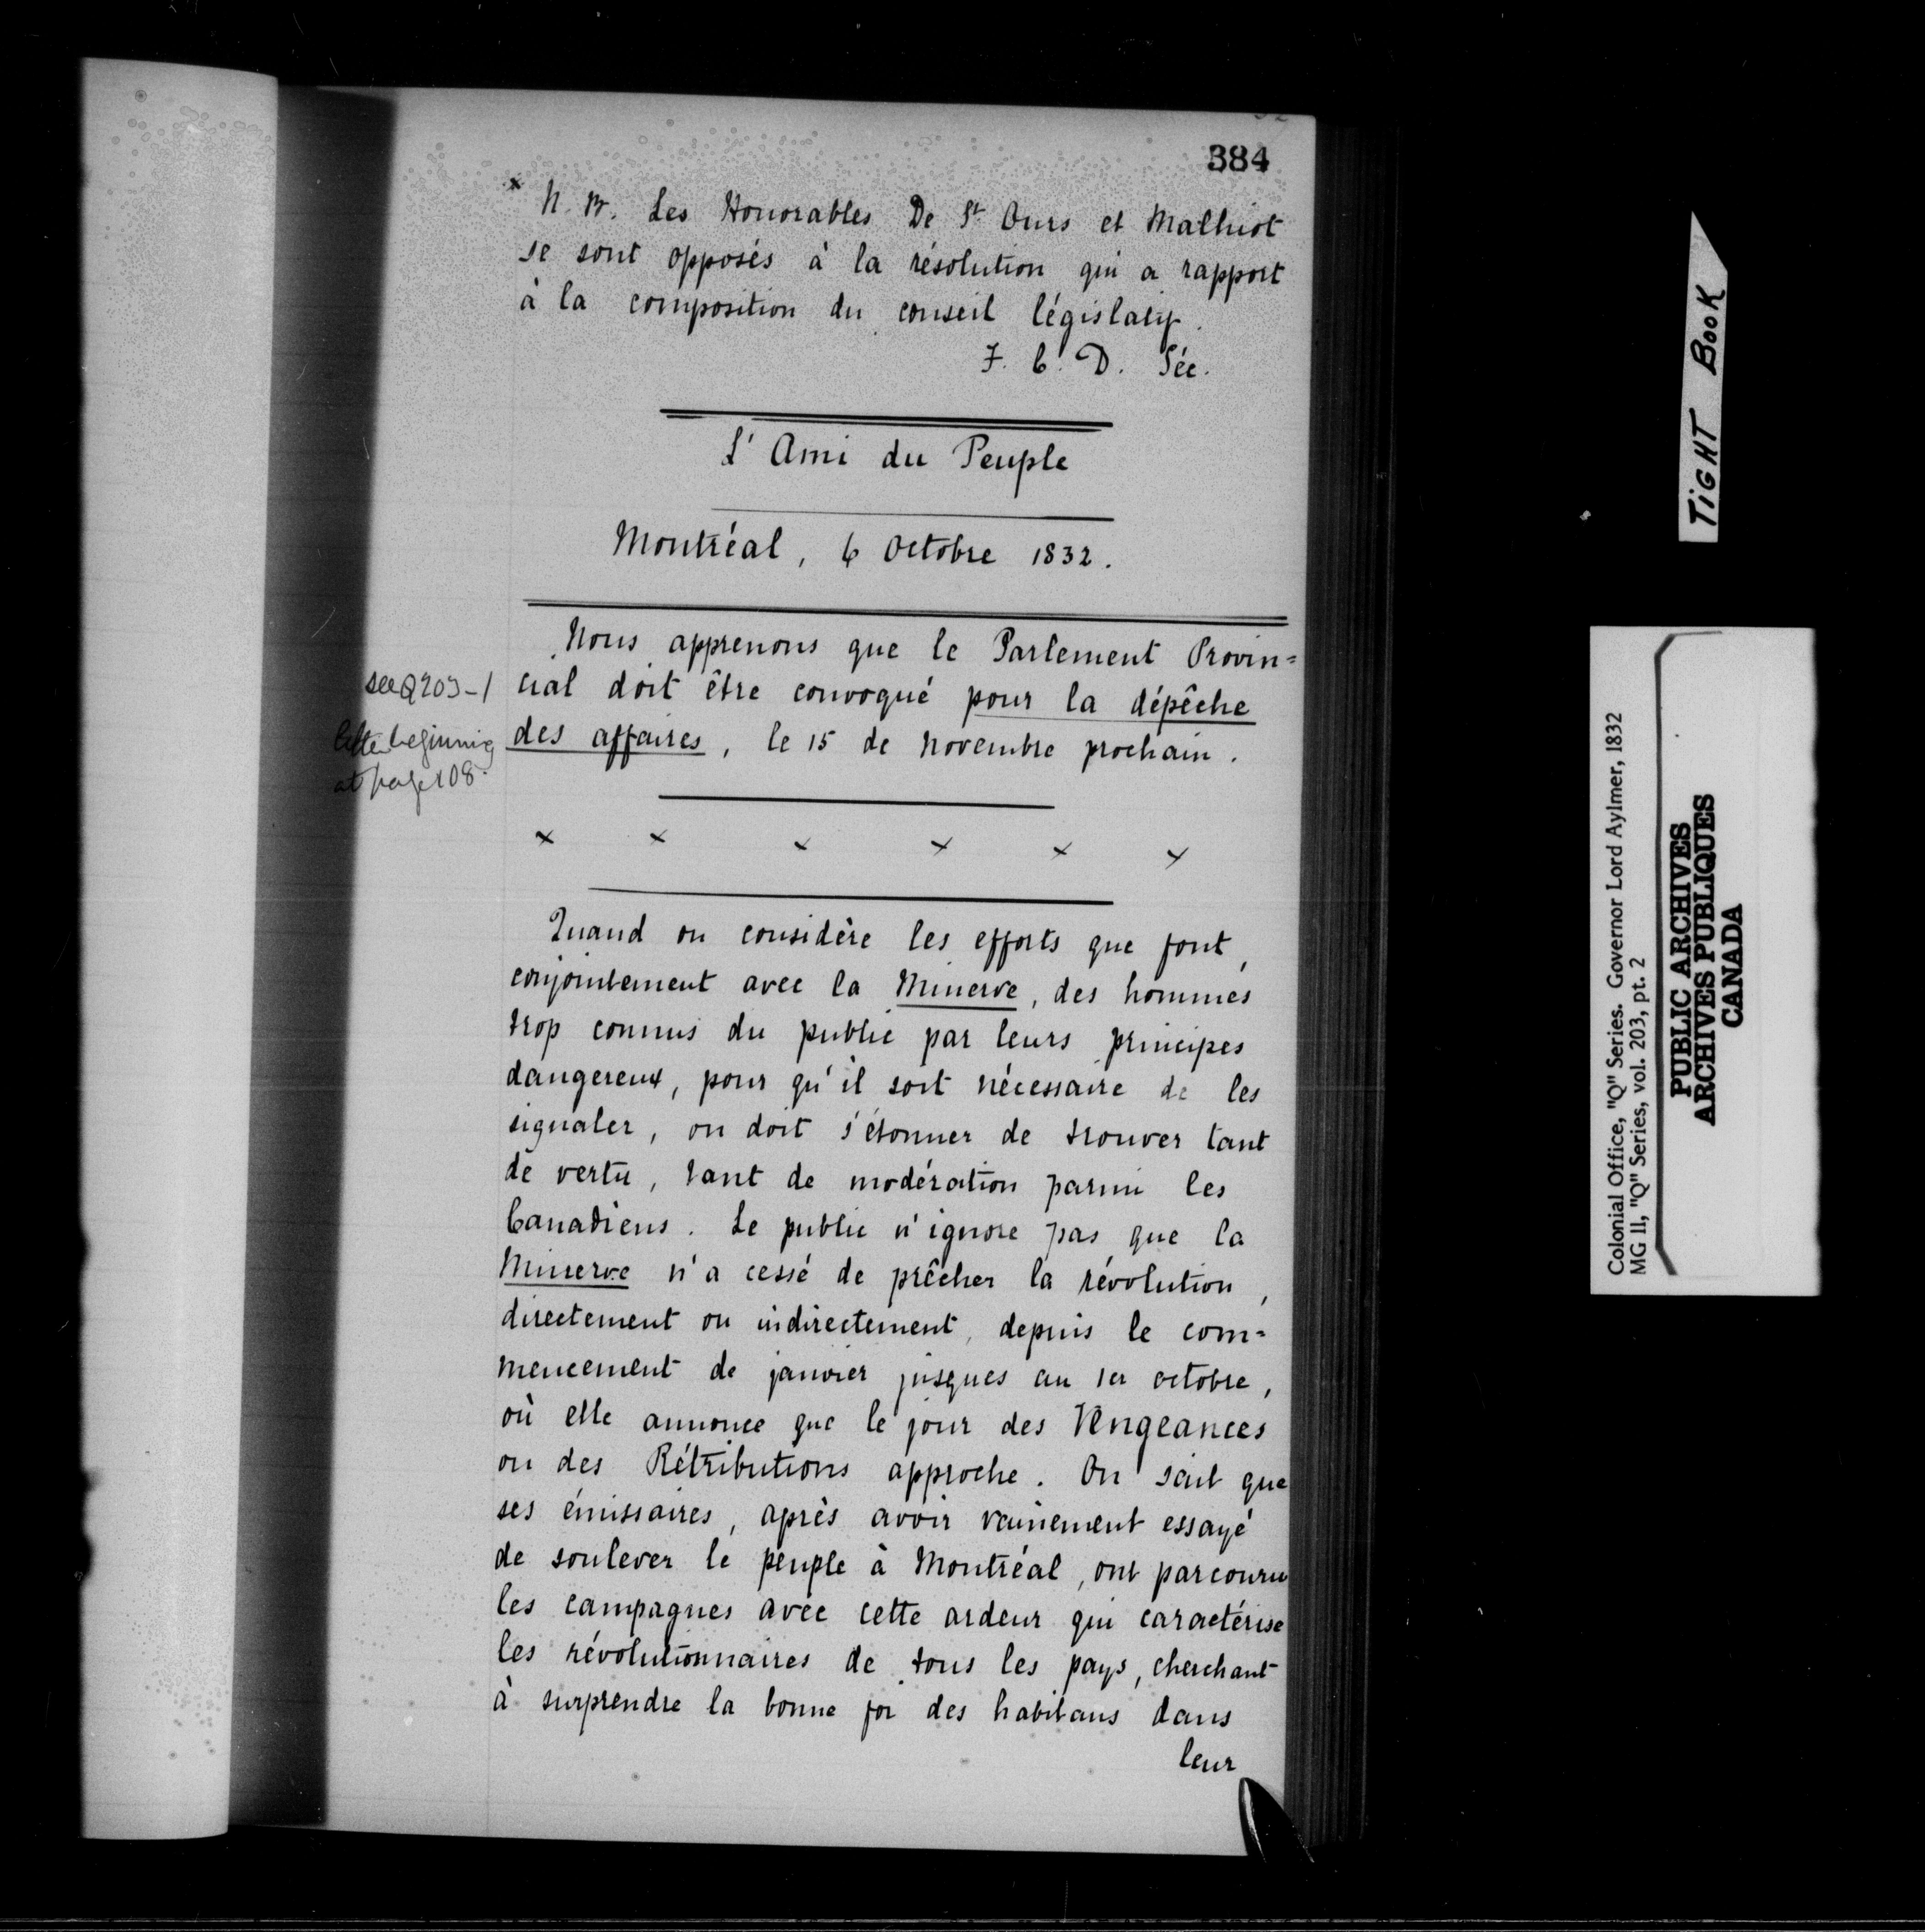 384
x N. B. Les Honorables De St Ours et Malhiot
se sont opposés à la résolution qui a rapport
à la composition du conseil législatif.
F. C. D. Séc.
L'Ami du Peuple
Montréal, 6 Octobre 1832.
Nous apprenons que le Parlement Provin=
cial doit être convoqué pour la dépêche
des affaires, le 15 de Novembre prochain.
see Q 203-1
letter beginning
at page 108.
x x x x x x
Quand on considère les efforts que font,
conjointement avec la Minerve, des hommes
trop connus du public par leurs principes
dangereux, pour qu'il soit nécessaire de les
signaler, on doit s'étonner de trouver tant
de vertu, tant de modération parmi les
Canadiens. Le public n'ignore pas que la
Minerve n'a cessé de prêcher la révolution,
directement ou indirectement, depuis le com=
mencement de janvier jusques au 1er octobre,
où elle annonce que le jour des Vengeances
ou des Rétributions approche. On sait que
ses émissaires, après avoir vainement essayé
de soulever le peuple à Montréal, ont parcouru
les campagnes avec cette ardeur qui caractérise
les révolutionnaires de tous les pays, cherchant
à surprendre la bonne foi des habitans dans
leur
TIGHT BOOK
Colonial Office, "Q" Series. Governor Lord Aylmer, 1832
MG II, "Q" Series, vol. 203, pt. 2
PUBLIC ARCHIVES
ARCHIVES PUBLIQUES
CANADA